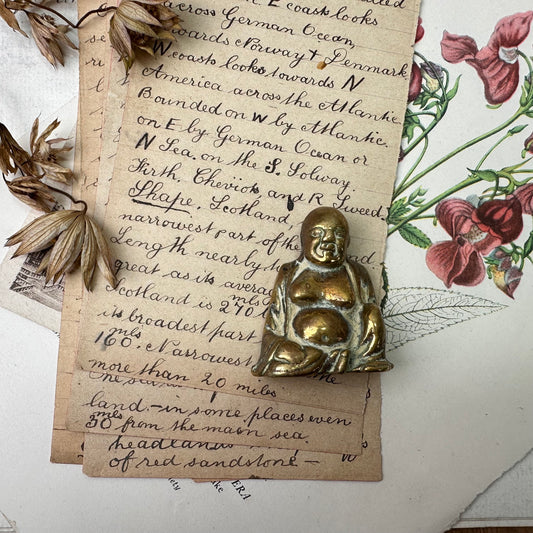 E coast looks
across German Ocean,
wards Norway & Denmark
W. coast looks towards N
America across the Atlantic.
Bounded on W by Atlantic.
on E by German Ocean or
N Sea. on the S. Solway.
Firth, Cheviots and R. Tweed
Shape. Scotland,
narrowest part of the
Length nearly
great as its avera
Scotland is 270 mls
its broadest part
160 mls. Narrowest
more than 20 miles
One
land - in some places even
50 mls from the main sea.
headlands
of red sandstone -
ERA